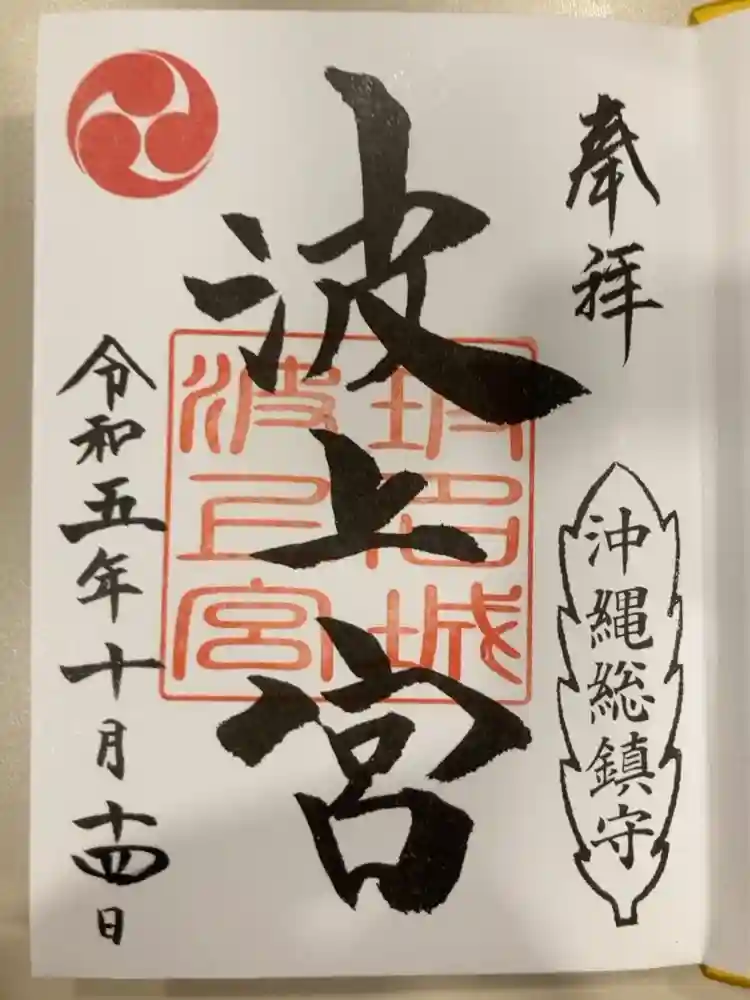 奉拝
沖縄総鎮守
波上宮
波上宮
令和五年十月十四日